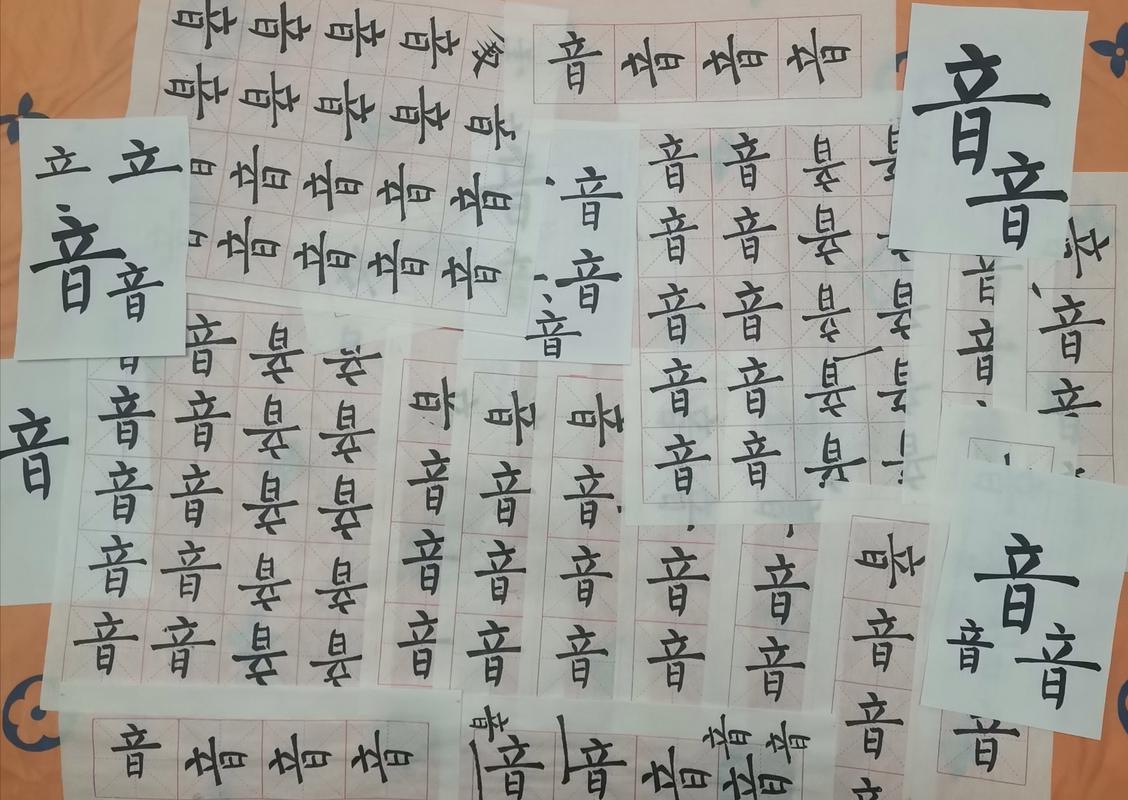 音 音 音 音
音 音 音 音 音
音 音 音 音
音 音 音 音
音 音 音 音
音
音
立 立
音
音
音
音
音
音 音 音
音 音 音
音 音 音 音
音 音 音
音 音 音
音
音
音
音
音 音
音 音 音 音
音 音 音 音
音 音 音 音
音 音 音 音
音 音 音
音 音 音
音 音 音 音 音
音 音 音 音 音
音
音
音
音
音 音
音
音 音 音 音
音 音 音
音 音 音 音